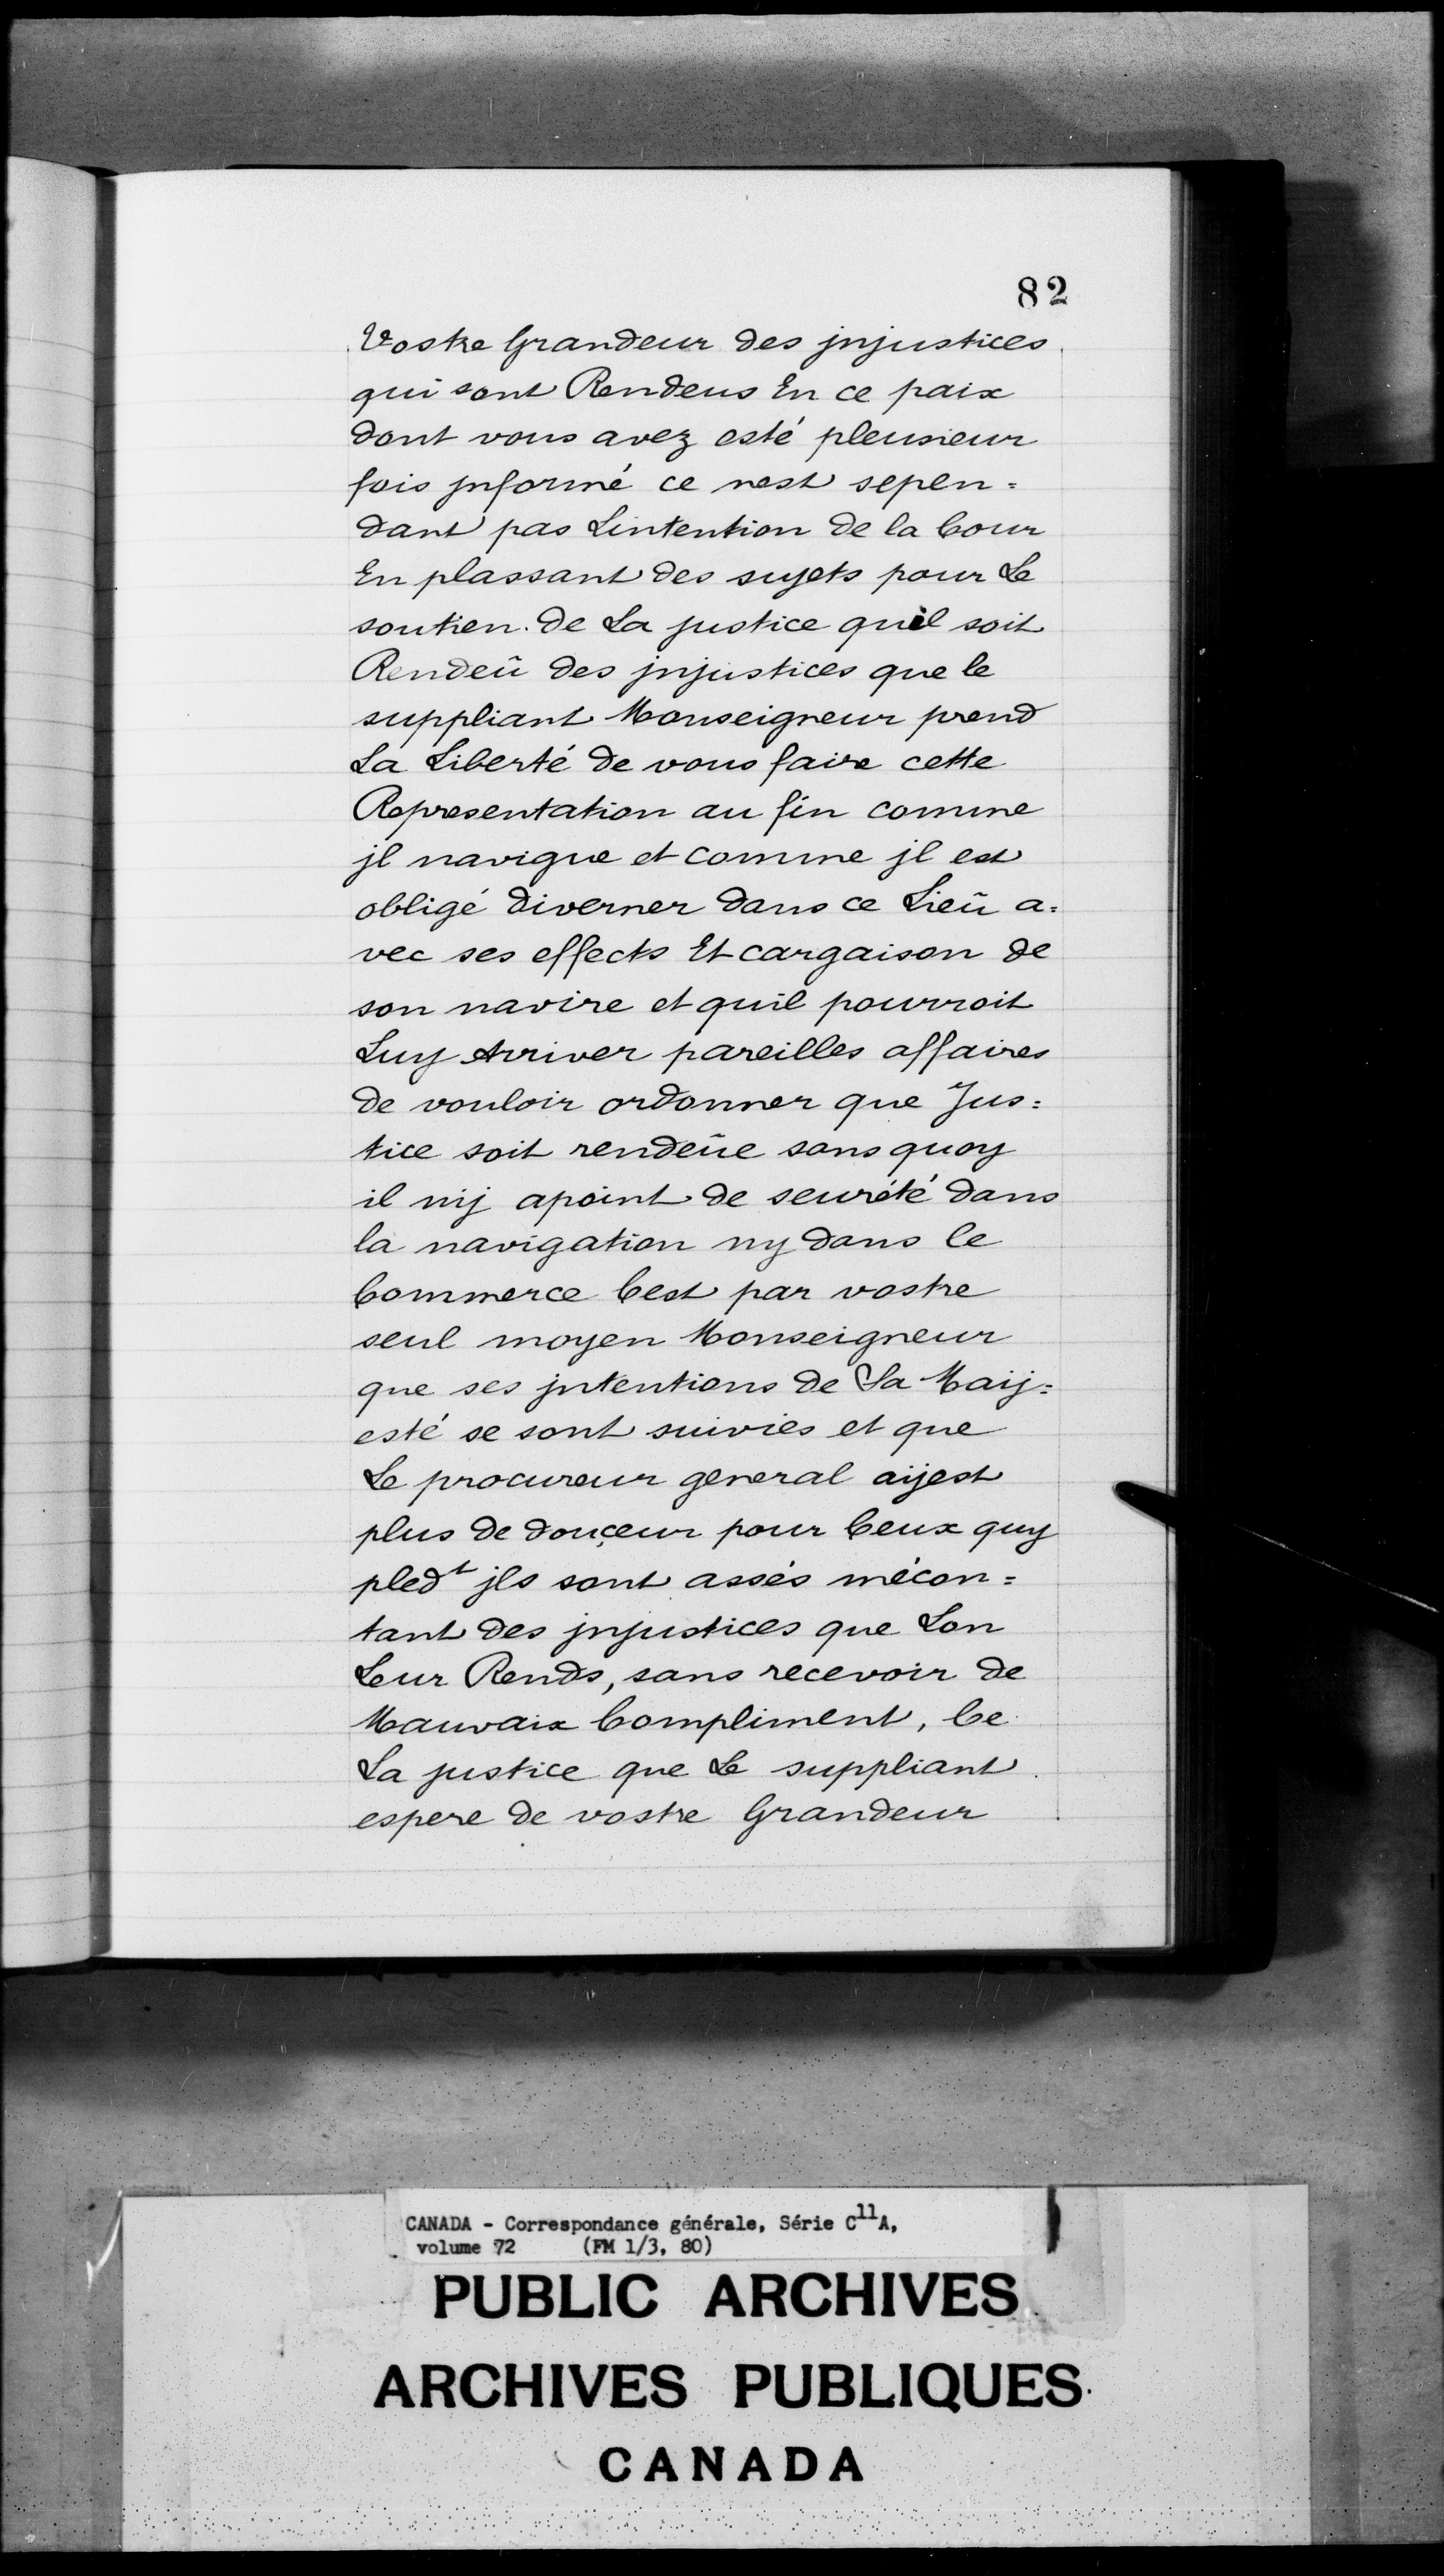 82
Vostre Grandeur des jnjustices
qui sont Rendeus En ce paix
dont vous avez esté pleusieur
fois jnformé ce nest sepen=
dant pas Lintention de la Cour
En plassant des sujets pour Le
soutien de La justice quil soit
Rendeü des jnjustices que le
suppliant Monseigneur prend
La Liberté de vous faire cette
Representation au fin comme
jl navigue et comme jl est
obligé diverner dans ce Lieü a=
vec ses effects Et cargaison de
son navire et quil pourroit
Luy Arriver pareilles affaires
de vouloir ordonner que Jus=
tice soit rendeüe sans quoy
il nij apoint de seurété dans
la navigation ny dans le
Commerce Cest par vostre
seul moyen Monseigneur
que ses jntentions de Sa Maij=
esté se sont suivies et que
Le procureur general aijest
plus de douçeur pour Ceux quy
pledt jls sont assés mécon=
tant des jnjustices que Lon
Leur Rends, sans recevoir de
Mauvaix Compliment, Ce
La justice que Le suppliant
espere de vostre Grandeur
CANADA - Correspondance générale, Série C11A,
volume 72 (FM 1/3, 80)
PUBLIC ARCHIVES
ARCHIVES PUBLIQUES
CANADA